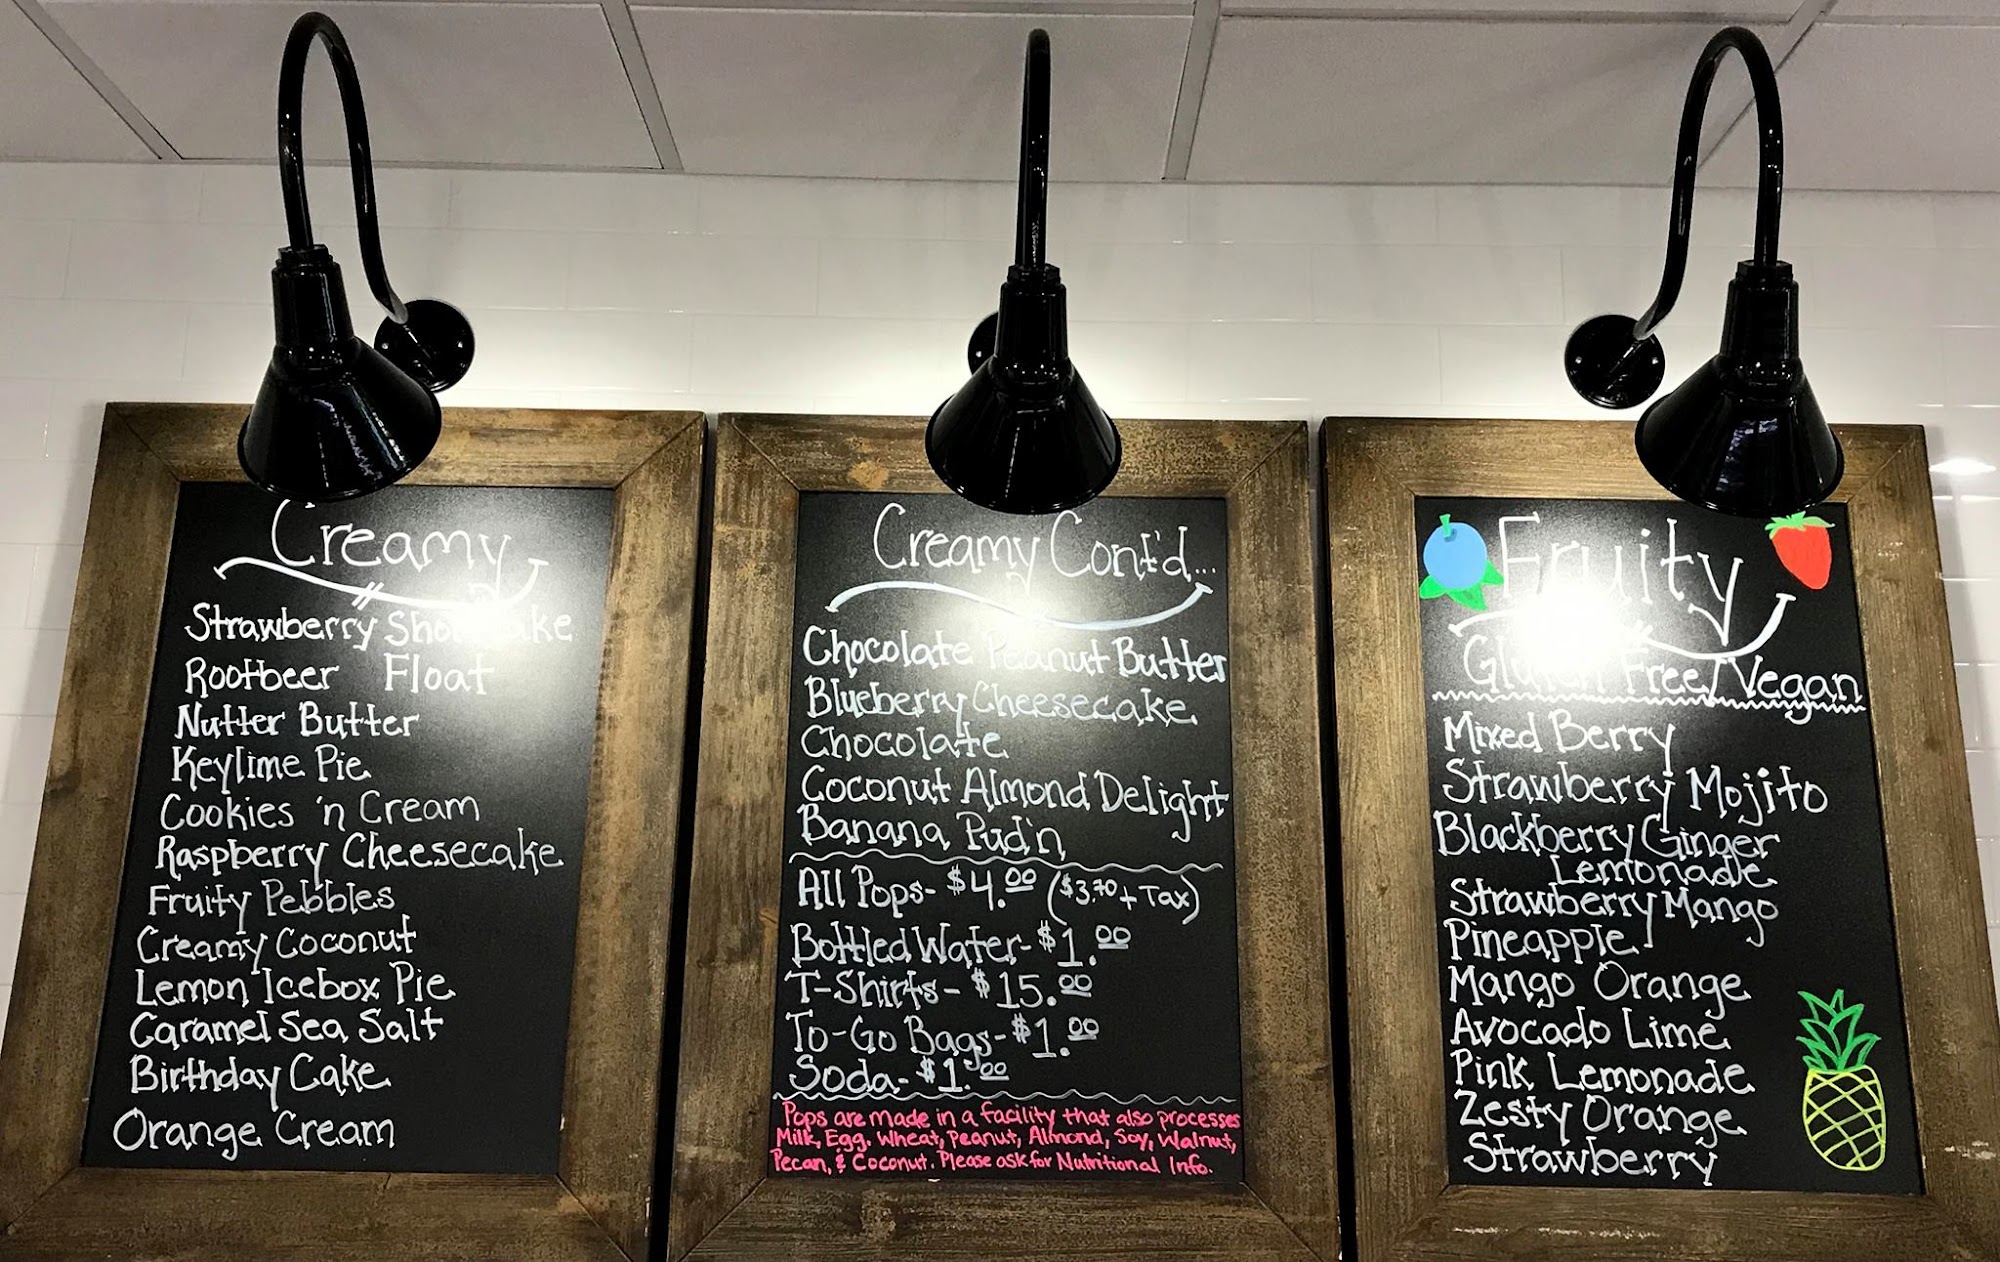 Creamy
Strawberry Shortcake
Rootbeer Float
Nutter Butter
Keylime Pie
Cookies 'n Cream
Raspberry Cheesecake
Fruity Pebbles
Creamy Coconut
Lemon Icebox Pie
Caramel Sea Salt
Birthday Cake
Orange Cream
Creamy Cont'd...
Chocolate Peanut Butter
Blueberry Cheesecake
Chocolate
Coconut Almond Delight
Banana Pud'n
All Pops- $4.00 ($3.70 + Tax)
Bottled Water- $1.00
T-Shirts- $15.00
To-Go Bags- $1.00
Soda- $1.00
Pops are made in a facility that also processes
Milk, Egg, Wheat, Peanut, Almond, Soy, Walnut,
Pecan, & Coconut. Please ask for Nutritional Info.
Fruity
Gluten Free/Vegan
Mixed Berry
Strawberry Mojito
Blackberry Ginger
Lemonade
Strawberry Mango
Pineapple
Mango Orange
Avocado Lime
Pink Lemonade
Zesty Orange
Strawberry